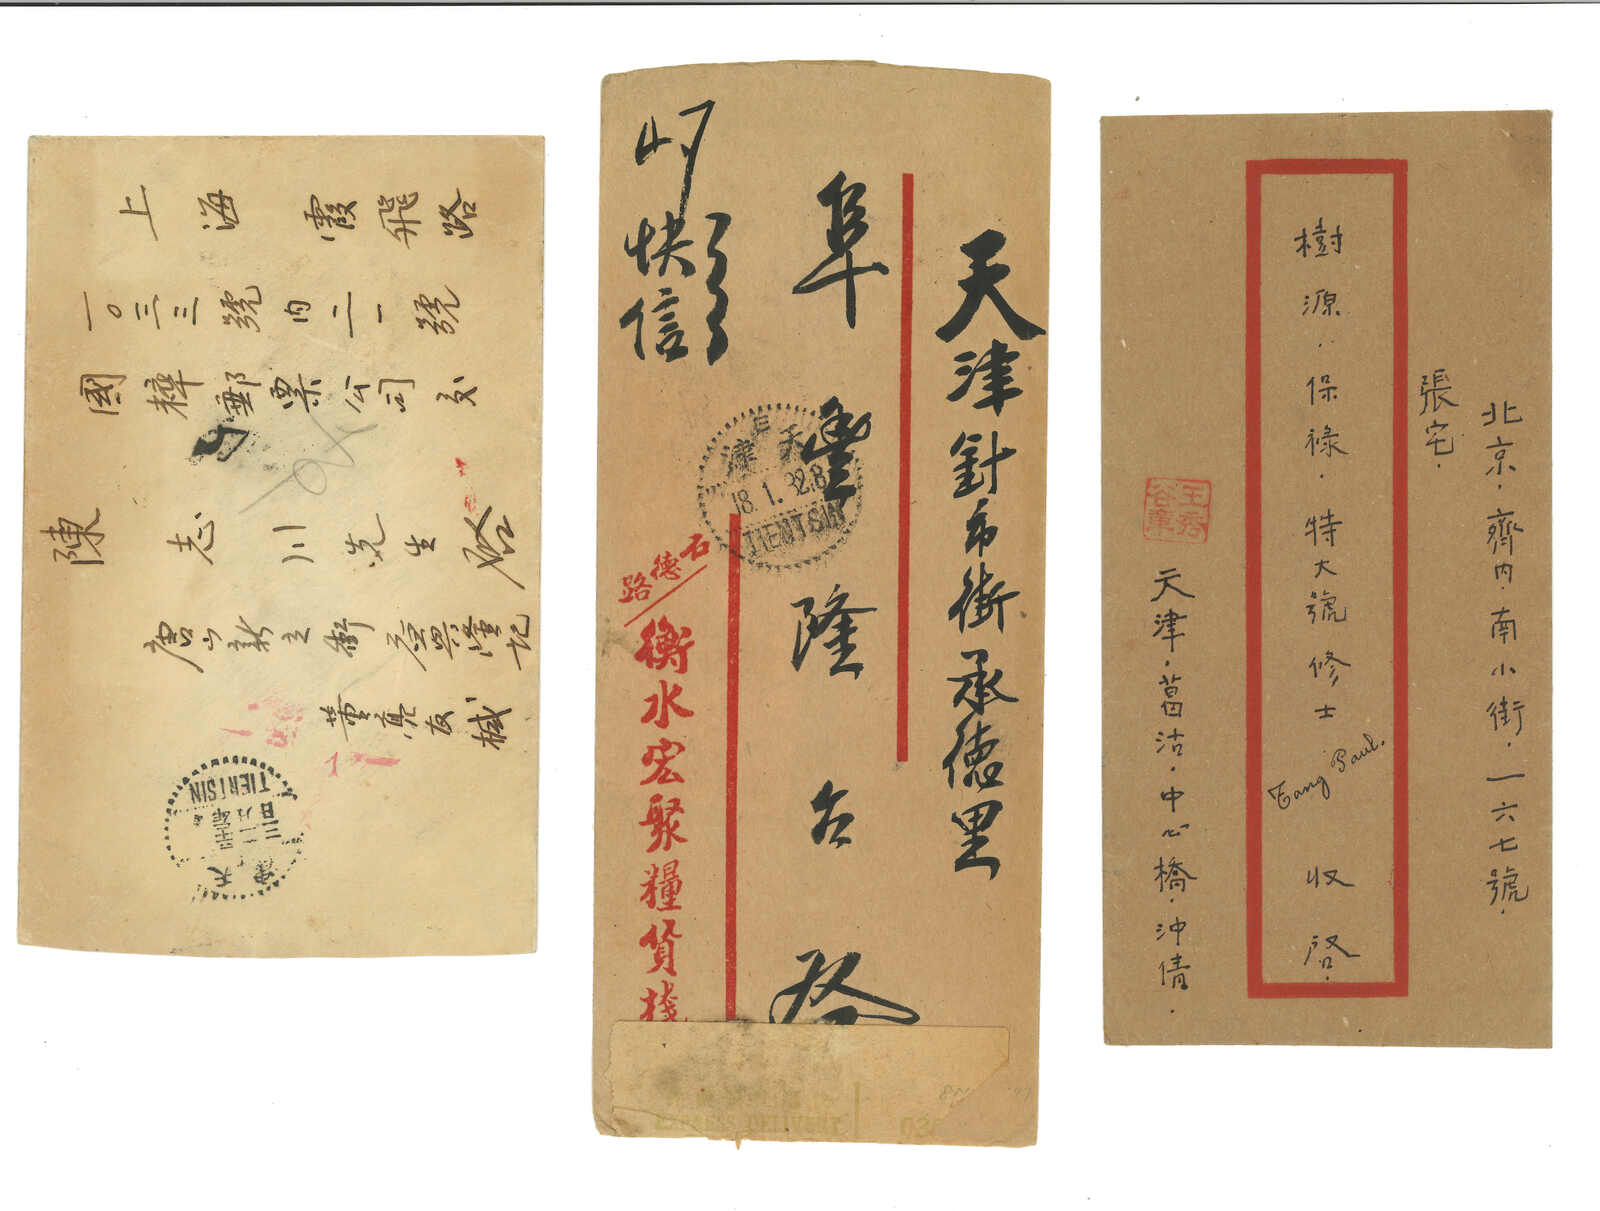 上海霞飛路
一〇三三號內二一號
國粹郵票公司交
陳志川先生啟
唐山新立街
董亮友緘
天津
TIENTSIN
快信
天津針市街承德里
阜豐隆台啓
天津
18.1.32.8
TIENTSIN
石德路
衡水宏聚糧貨棧
北京．齊内．南小街．一六七號．
張宅．
樹源．保祿．特大號修士
Tang Paul.
收啓．
天津．葛沽．中心橋．沖倩．
王秀谷章